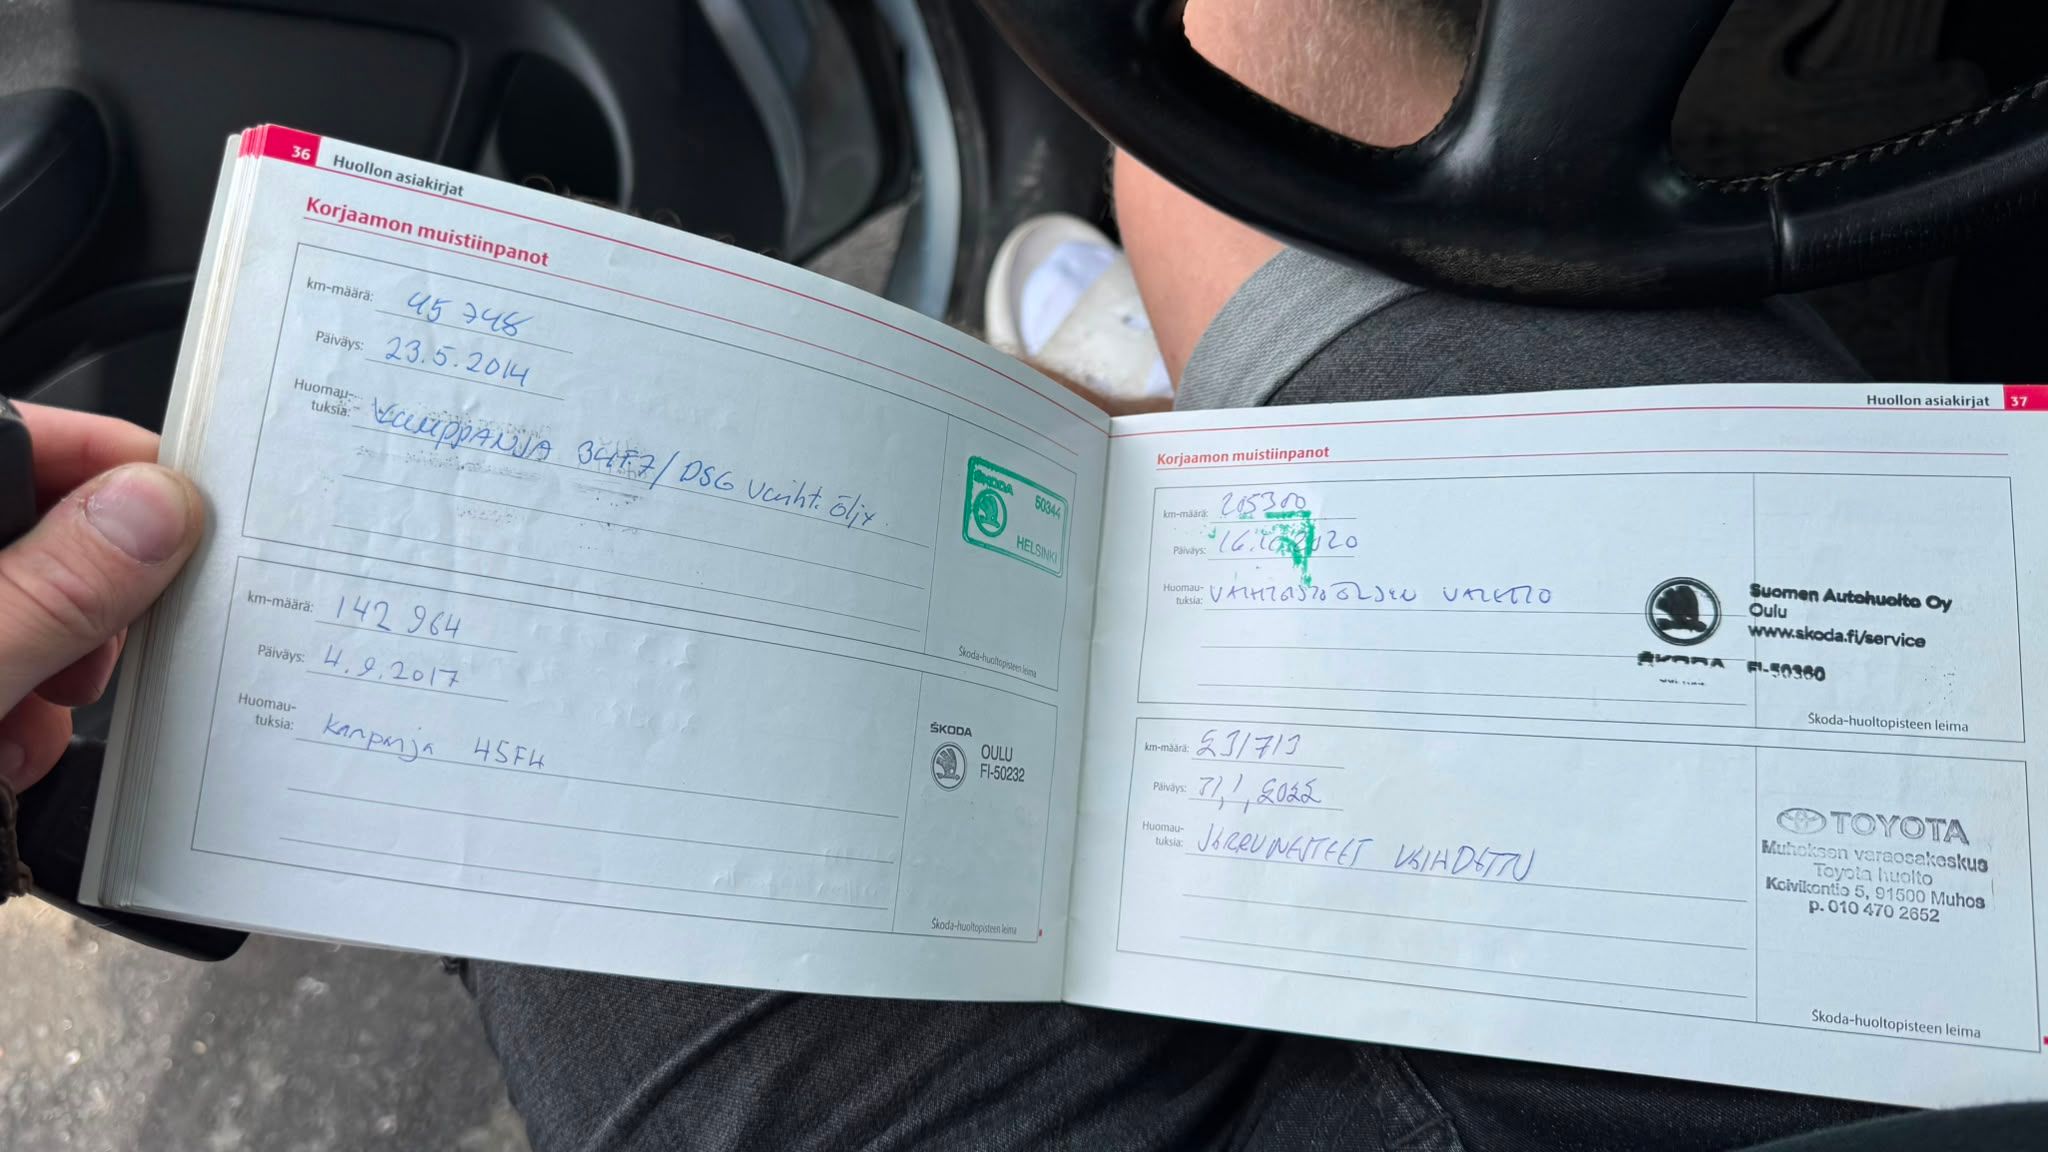 36 Huollon asiakirjat
Korjaamon muistiinpanot
km-määrä: 45 748
Päiväys: 23.5.2014
Huomau-
tuksia: KAMPPANJA 34F7/DSG vaiht. öljy
ŠKODA 50344
HELSINKI
Škoda-huoltopisteen leima
km-määrä: 142 964
Päiväys: 4.9.2017
Huomau-
tuksia: kampanja 45F4
ŠKODA
OULU
FI-50232
Škoda-huoltopisteen leima
Huollon asiakirjat 37
Korjaamon muistiinpanot
km-määrä: 205300
Päiväys: 16.10.2020
Huomau-
tuksia: VAIHTEISTOÖLJYN VAIHTO
Suomen Autohuolto Oy
Oulu
www.skoda.fi/service
ŠKODA FI-50360
Škoda-huoltopisteen leima
km-määrä: 231713
Päiväys: 31.1.2022
Huomau-
tuksia: JARRUNESTEET VAIHDETTU
TOYOTA
Muhoksen varaosakeskus
Toyota huolto
Koivikontie 5, 91500 Muhos
p. 010 470 2652
Škoda-huoltopisteen leima